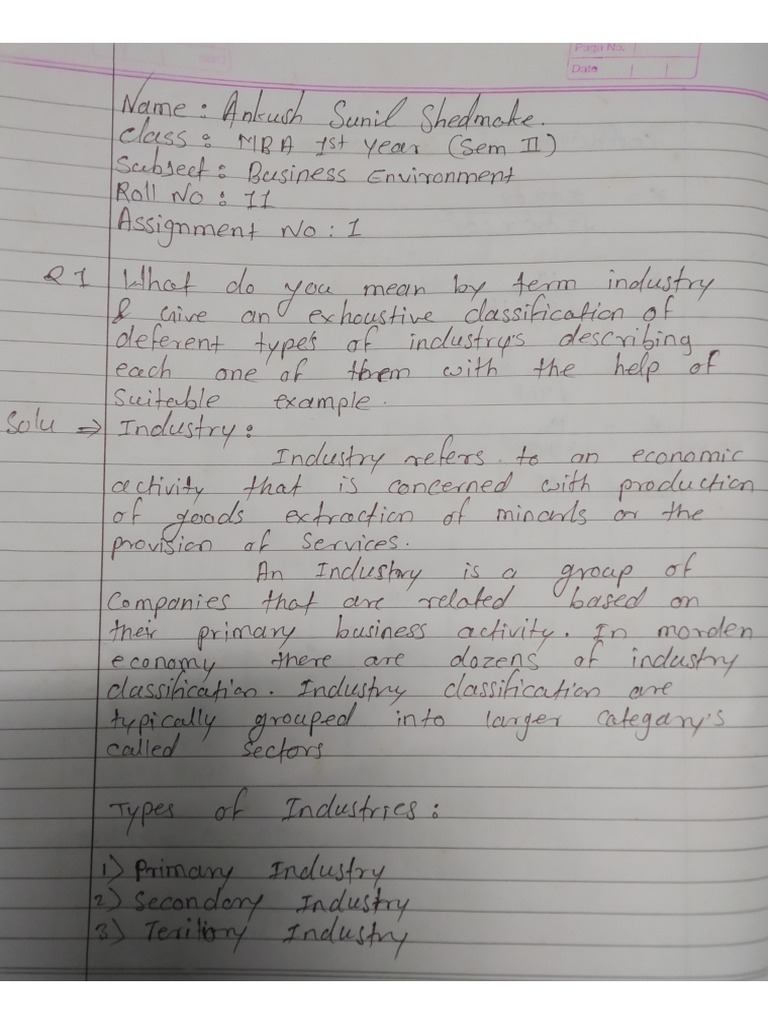 Page No.
Date
Name : Ankush Sunil Shedmake.
Class : MBA 1st Year (Sem II)
Subject : Business Environment
Roll No : 11
Assignment No : 1
Q1 What do you mean by term industry
& Give an exhaustive classification of
deferent types of industry's describing
each one of them with the help of
Suitable example.
Solu ⇒ Industry :
Industry refers to an economic
activity that is concerned with production
of goods extraction of minards or the
provision of Services.
An Industry is a group of
Companies that are related based on
their primary business activity. In morden
economy there are dozens of industry
classification. Industry classification are
typically grouped into larger Category's
called Sectors
Types of Industries :
1) Primary Industry
2) Secondory Industry
3) Teritiory Industry